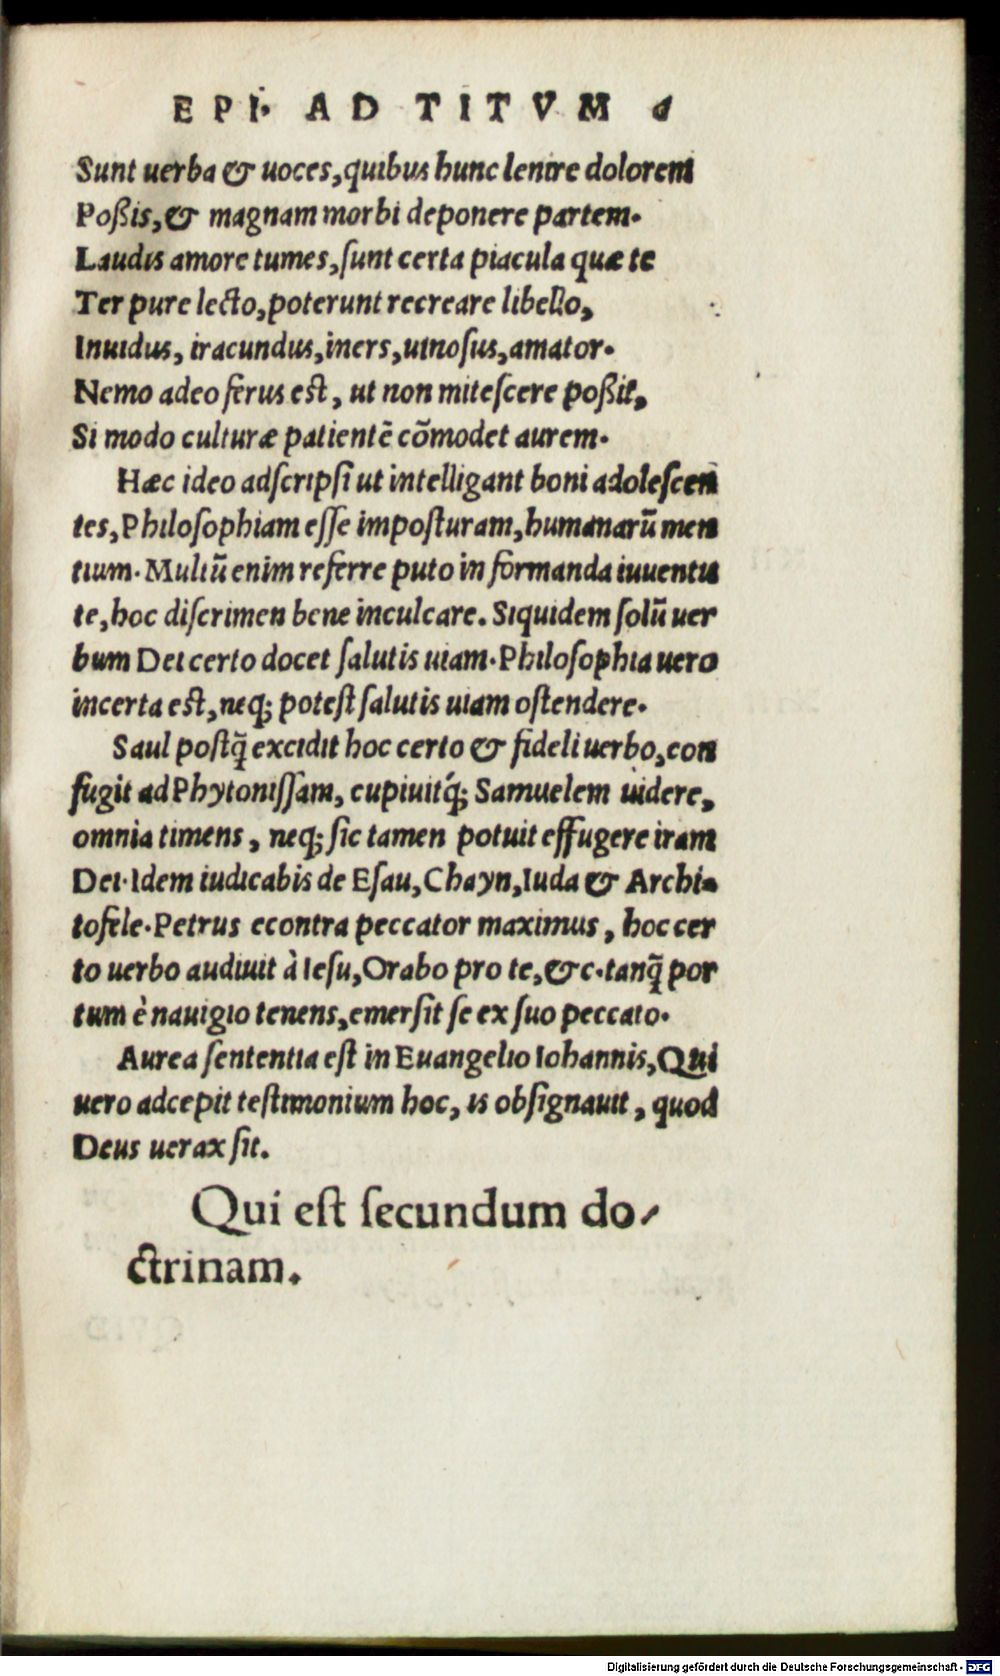 EPI· AD TITVM
Sunt uerba & uoces, quibus hunc lenire dolorem
Poßis, & magnam morbi deponere partem·
Laudis amore tumes, ſunt certa piacula quæ te
Ter pure lecto, poterunt recreare libello,
Inuidus, iracundus, iners, uinoſus, amator·
Nemo adeo ferus eſt, ut non miteſcere poßit,
Si modo culturæ patientē cōmodet aurem·
Hæc ideo adſcripſi ut intelligant boni adoleſcen
tes, Philoſophiam eſſe impoſturam, humanarū men
tium· Multū enim referre puto in formanda iuuentu
te, hoc diſcrimen bene inculcare. Siquidem ſolū uer
bum Dei certo docet ſalutis uiam· Philoſophia uero
incerta eſt, neq; poteſt ſalutis uiam oſtendere·
Saul poſtq̃ excidit hoc certo & fideli uerbo, con
fugit ad Phytoniſſam, cupiuitq́; Samuelem uidere,
omnia timens, neq; ſic tamen potuit effugere iram
Dei· Idem iudicabis de Eſau, Chayn, Iuda & Archi-
tofele· Petrus econtra peccator maximus, hoc cer
to uerbo audiuit à Ieſu, Orabo pro te, &c· tanq̃ por
tum è nauigio tenens, emerſit ſe ex ſuo peccato·
Aurea ſententia eſt in Euangelio Iohannis, Qui
uero adcepit teſtimonium hoc, is obſignauit, quod
Deus uerax ſit.
Qui eſt ſecundum do⸗
ctrinam.
Digitalisierung gefördert durch die Deutsche Forschungsgemeinschaft - DFG